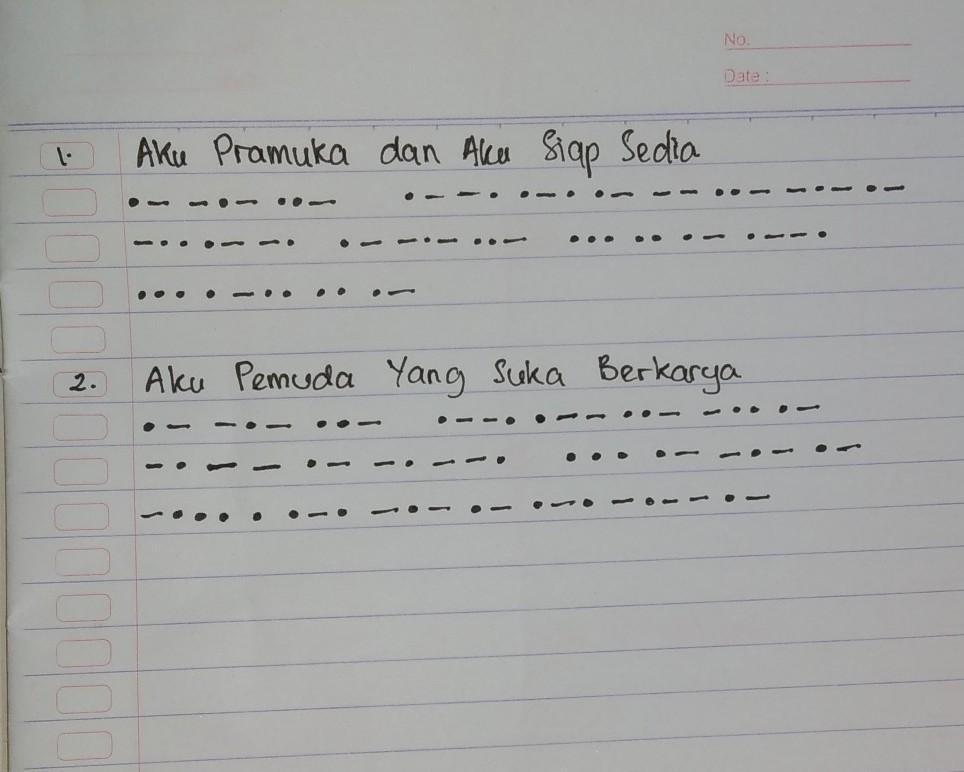 No.
Date :
1. Aku Pramuka dan Aku Siap Sedia
•— —•— ••— •——• •—• •— —— ••— —•— •—
—•• •— —• •— —•— ••— ••• •• •— •——•
••• • —•• •• •—
2. Aku Pemuda Yang Suka Berkarya
•— —•— ••— •——• •—— ••— —•• •—
—• — — •— —• ——• ••• •— —•— •—
—••• • •—• —•— •— •—• —•—— •—